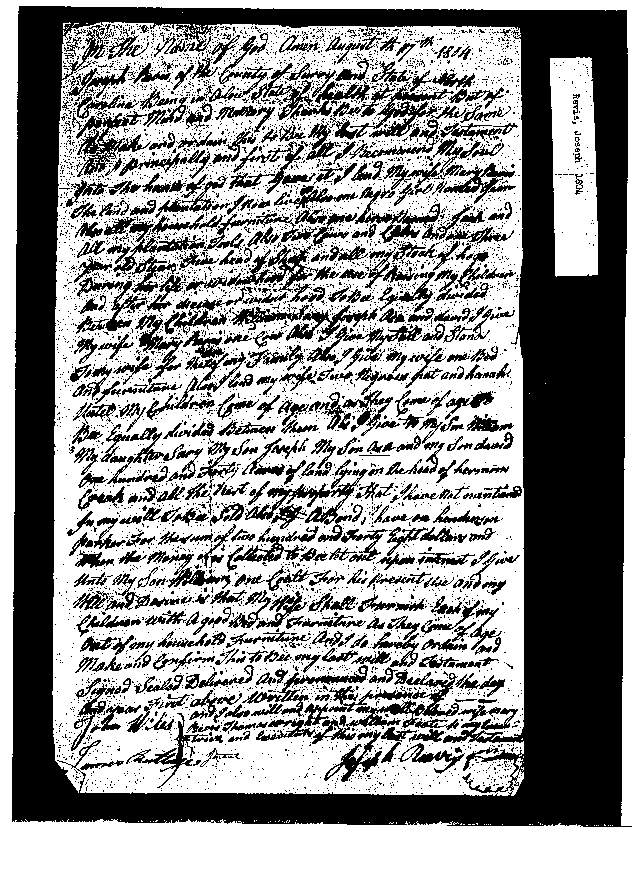 In The Name of God Amen August th 17th 1814
Joseph Revis of the County of Surry and State of North
Carolina Being in a low State of health at present But of
perfect Mind and Memory Thanks Be to God for the Same
to Make and ordain this to Be My last will and Testament
And principally and first of all I Recommend My Soul
Into The hands of god that gave it I lend My wife Mary Revis
The land and plantation I Now live also one Negro Girl
Also all my household furniture Also one horse Jack and
All my plantation Tools Also Four Cows and Calves and one Three
year old Steer Three head of Sheep and all my Stock of hogs
During her life or widowhood for the use of Raising My Children
And after her decease or widow hood to Be Equally divided
Between My Children Joseph Asa and david I Give
My wife Mary Revis one Cow Also I Give My Still and Stand
To my wife for the use of my Family Also I Give My wife one Bed
And furniture Also I lend my wife Two Negroes and hanah
Until My Children Come of Age and as They Come of age to
Bee Equally divided Between Them Also I Give to My Son William
My daughter Sary My Son Joseph My Son Asa and my Son david
One hundred and Forty Acres of land lying on the head of
Creek and all the Rest of my property That I have not mentioned
In my will To Be Sold Also A Bond I have on henderson
Parker For the sum of two hundred and Forty Eight dollars and
When the Money is Collected to Be let out upon interest I Give
Unto My Son William one Coalt For his Present Use and my
Will and Desire is that My Wife Shall Furnish Each of my
Children With A good Bed and Furniture As They Come of Age
Out of my household Furniture And I do hereby ordain and
Make and Confirm This to Bee my last will and Testament
Signed Sealed Delivered And pronounced and Declared the day
And year First above Written in the presence of
John Wiles
and I also will and appoint my beloved wife mary
Revis Thomas wright and william to my
and Executors of this my last will and Testament
Joseph Revis
Revis, Joseph 1814